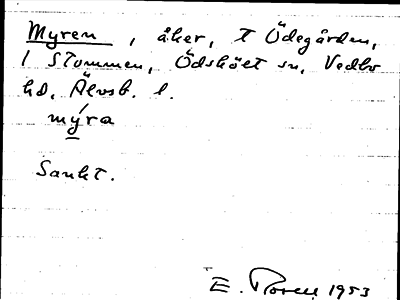 Myren, åker, t Ödegården,
1 Stommen, Ödsköet sn, Vedbo
hd, Älvsb. l.
mýra
Sankt.
E. 1953